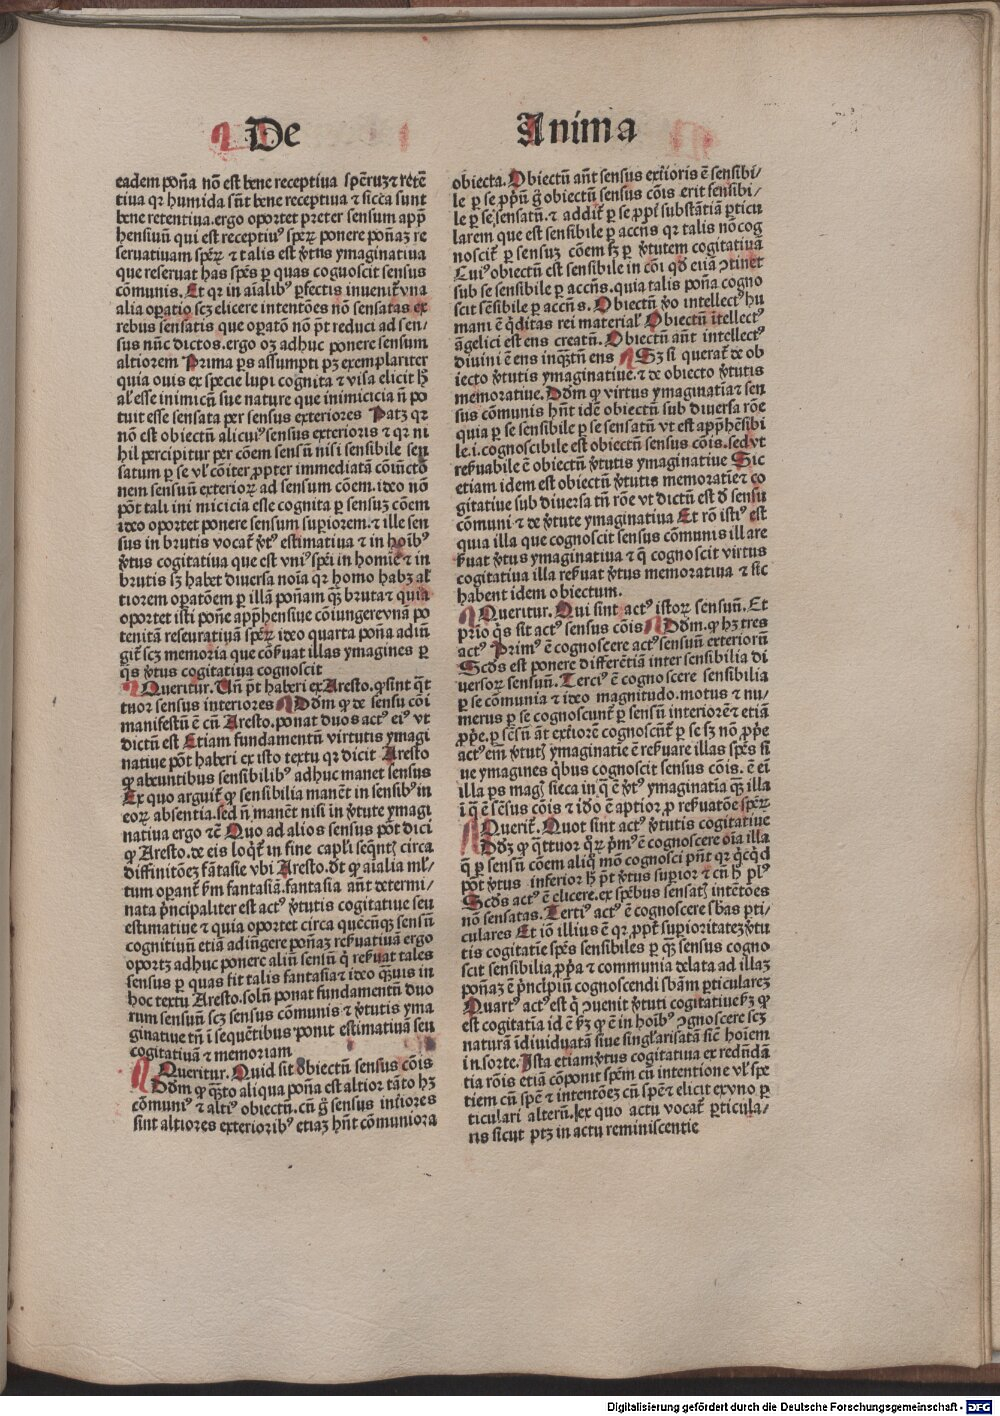 De Anima
eadem poña nō est bene receptiua spēruꝫ ⁊ retē
tiua qꝛ humida sūt bene receptiua ⁊ sicca sunt
bene retentiua.ergo oportet preter sensum app̄
hensiuū qui est receptiuꝰ speꝝ ponere poñaꝫ re
seruatiuam speꝝ ⁊ talis est v̄tus ymaginatiua
que reseruat has spēs p quas cognoscit sensus
cōmunis. Et qꝛ in aīalibꝰ pfectis inuenit̄ vna
alia opatio scꝫ elicere intentōes nō sensatas ex
rebus sensatis que opatō nō pt̄ reduci ad sen⸗
sus nūc dictos.ergo oꝫ adhuc ponere sensum
altiorem Prima ps assumpti pꝫ exemplariter
quia ouis ex specie lupi cognita ⁊ visa elicit h̄
al̄ esse inimicū sue nature que inimicicia n̄ po
tuit esse sensata per sensus exteriores Patꝫ qꝛ
nō est obiectū alicuiꝰ sensus exterioris ⁊ qꝛ ni
hil percipitur per cōem sensū nisi sensibile sen
satum p se vl̓ cōiter propter immediatā cōiūctō
nem sensuū exterioꝝ ad sensum cōem.ideo nō
pōt tali ini micicia esse cognita p sensuꝫ cōem
ideo oportet ponere sensum supiorem.⁊ ille sen
sus in brutis vocat̄ v̄tꝰ estimatiua ⁊ in hoībꝰ
v̄tus cogitatiua que est vniꝰ spēi in homīe ⁊ in
brutis sꝫ habet diuersa noīa qꝛ homo habꝫ al̓
tiorem opatōem p illā poñam qꝫ bruta ⁊ quia
oportet isti poñe app̄hensiue cōiungere vna po
tenitā reseuratiuā speꝝ ideo quarta poña adiū
git̄ scꝫ memoria que cōseruat illas ymagines p
qs v̄tus cogitatiua cognoscit
Queritur. Uñ pt̄ haberi ex Aresto.ꝙ sint q̄t
tuor sensus interiores Ddm ꝙ de sensu cōi
manifestū ē cū Aresto.ponat duos actꝰ eiꝰ vt
dictū est Etiam fundamentū virtutis ymagi
natiue pōt haberi ex isto textu qꝛ dicit Aresto
ꝙ abeuntibus sensibilibꝰ adhuc manet sensus
Ex quo arguit̄ ꝙ sensibilia manēt in sensibꝰ in
eoꝝ absentia.sed n̄ manēt nisi in v̄tute ymagi
natiua ergo ⁊ē Quo ad alios sensus pōt dici
ꝙ Aresto.de eis loqt̄ in fine capl̓i seqntꝭ circa
diffinitōeꝫ fātasie vbi Aresto.dt̄ ꝙ aīalia ml̓⸗
tum opant̄ k̄m fantasiā.fantasia añt determi⸗
nata pncipaliter est actꝰ v̄tutis cogitatiue seu
estimatiue ⁊ quia oportet circa quēcūqꝫ sensū
cognitiuū etiā adiūgere poñaꝫ refuatiuā ergo
oportꝫ adhuc ponere aliū sensū q̄ refuat tales
sensus p quas fit talis fantasia ⁊ ideo qꝫuis in
hoc textu Aresto.solū ponat fundamentū duo
rum sensuū scꝫ sensus cōmunis ⁊ v̄tutis yma
ginatiue tñ ī sequētibus ponit estimatiuā seu
cogitatiuā ⁊ memoriam
Queritur. Quid sit obiectū sensus cōis
Ddm ꝙ qꝫto aliqua poña est altior tāto hꝫ
cōmuniꝰ ⁊ altiꝰ obiectū.cū g̊ sensus int̄iores
sint altiores exterioribꝰ etiaꝫ hñt cōmuniora
obiecta. Obiectū añt sensus ext̄ioris ē sensibi⸗
le p se pp̄ū g̊ obiectū sensus cōis erit sensibi⸗
le p se sensatū.⁊ addit̄ p se pp̄t substātiā pticu
larem que est sensibile p accñs qꝛ talis nō cog
noscit̄ p sensuꝫ cōem sꝫ p v̄tutem cogitatiuā
Cuiꝰ obiectū est sensibile in cōi qd̓ etiā ꝯtinet
sub se sensibile p accñs.quia talis poña cogno
scit sēsibile p accñs. Obiectū v̄o intellectꝰ hu
mani ē qditas rei material̓ Obiectū ītellectꝰ
āgelici est ens creatū. Obiectū añt intellectꝰ
diuini ē ens inqꝫtū ens Sꝫ si querat̄ de ob
iecto v̄tutis ymaginatiue.⁊ de obiecto v̄tutis
memoratiue. Ddm ꝙ virtus ymaginatia ⁊ sen
sus cōmunis hñt idē obiectū sub diuersa rōe
quia p se sensibile p se sensatū vt est app̄hēsibi
le.i.cognoscibile est obiectū sensus cōis.sed vt
refuabile ē obiectū v̄tutis ymaginatiue Sic
etiam idem est obiectū v̄tutis memoratīe ⁊ co
gitatiue sub diuersa tñ rōe vt dictū est d̓ sensū
cōmuni ⁊ de v̄tute ymaginatiua Et rō istiꝰ est
quia illa que cognoscit sensus cōmunis ill are
fuat v̄tus ymaginatiua ⁊ q̄ cognoscit virtus
cogitatiua illa refuat v̄tus memoratiua ⁊ sic
habent idem obiectum.
Queritur. Qui sint actꝰ istoꝝ sensuū. Et
prīo qs sit actꝰ sensus cōis Ddm.ꝙ hꝫ tres
actꝰ Primꝰ ē cognoscere actꝰ sensuū exterioꝝ
Scd̓s est ponere differētiā inter sensibilia di
uersoꝝ sensuū. Terciꝰ ē cognoscere sensibilia
p se cōmunia ⁊ ideo magnitudo.motus ⁊ nu⸗
merus p se cognoscunt̄ p sensū interiorē ⁊ etiā
ppe.p sēsū āt ext̄iorē cognoscūt̄ p se sꝫ nō ppe
actꝰ em̄ v̄tutꝭ ymaginatīe ē refuare illas spēs si
ue ymagines qbus cognoscit sensus cōis. ē ei
illa ps magꝭ sicca in q̄ ē v̄tꝰ ymaginatīa qꝫ illa
ī q̄ ē sēsus cōis ⁊ īdo ē aptior p refuatōe speꝝ
Querit̄. Quot sint actꝰ v̄tutis cogitatiue
Ddꝫ ꝙ q̄ttuor qꝝ pmꝰ ē cognoscere oīa illa
q̄ p sensū cōem aliq̄ mō cognosci pñt qꝛ qcqd
pōt v̄tus inferior h̄ pt̄ v̄tus supior ⁊ cū h̄ plꝰ
Scd̓s actꝰ ē elicere.ex spēbus sensatꝭ intētōes
nō sensatas. Tertiꝰ actꝰ ē cognoscere sb̄as pti⸗
culares Et iō illius ē qꝛ ppt̄ supioritateꝫ v̄tu
tis cogitatīe spēs sensibiles p qꝫ sensus cogno
scit sensibilia ppa ⁊ communia delata ad illaꝫ
poñaꝫ ē pncipiū cognoscendi sb̄am pticulareꝫ
Quartꝰ actꝰ est q̄ ꝯuenit v̄tuti cogitatiue ꝙ
est cogitatīa id ē ꝙ ē in hoībꝰ ꝯgnoscere scꝫ
naturā īdiuiduatā siue singl̓arisatā sic̄ hoīem
in sorte. Ista etiam v̄tus cogitatiua ex redūdā
tia rōis etiā cōponit spēm cū intentione vl̓ spe
tiem cū spē ⁊ intentōeꝫ cū spē ⁊ elicit ex vno p
ticulari alterū.ex quo actu vocat̄ pticula⸗
ris sicut ptꝫ in actu reminiscentie
Digitalisierung gefördert durch die Deutsche Forschungsgemeinschaft - DFG